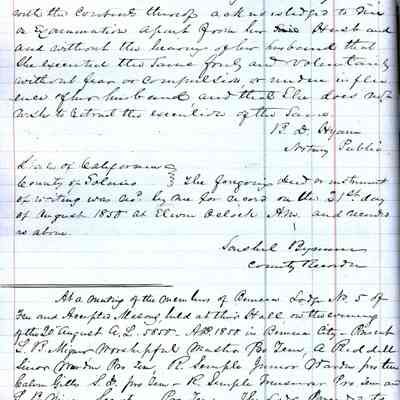 with the contents thereof acknowledged to me
on Examination apart from her Husband
and without the hearing of her husband that
She executed the same freely and Voluntarily
without fear or compulsion or undue influ
ence of her husband, and that She does not
wish to retract the execution of the Same
B. D. Hyam
Notary Public
State of California
County of Solano } The foregoing deed or instrument
of writing was by me for record on the 21st day
of August 1850 at Eleven Oclock A.M. and recorded
as above
Bynum
County Recorder
At a meeting of the members of Benicia Lodge No. 5 of
Free and Accepted Masons, held at this Hall on the evening
of the 20 August A.L. 5850 - A.D. 1850 in Benicia City - Present
L. B. Mizner Worshipful Master Pro Tem, A. Riddell
Senor Warden Pro Tem, R. Semple Junior Warden pro tem
Gibbs S.D. pro tem - R. Semple Treasurer Pro Tem and
L. B. Pro Tem. The Lodge